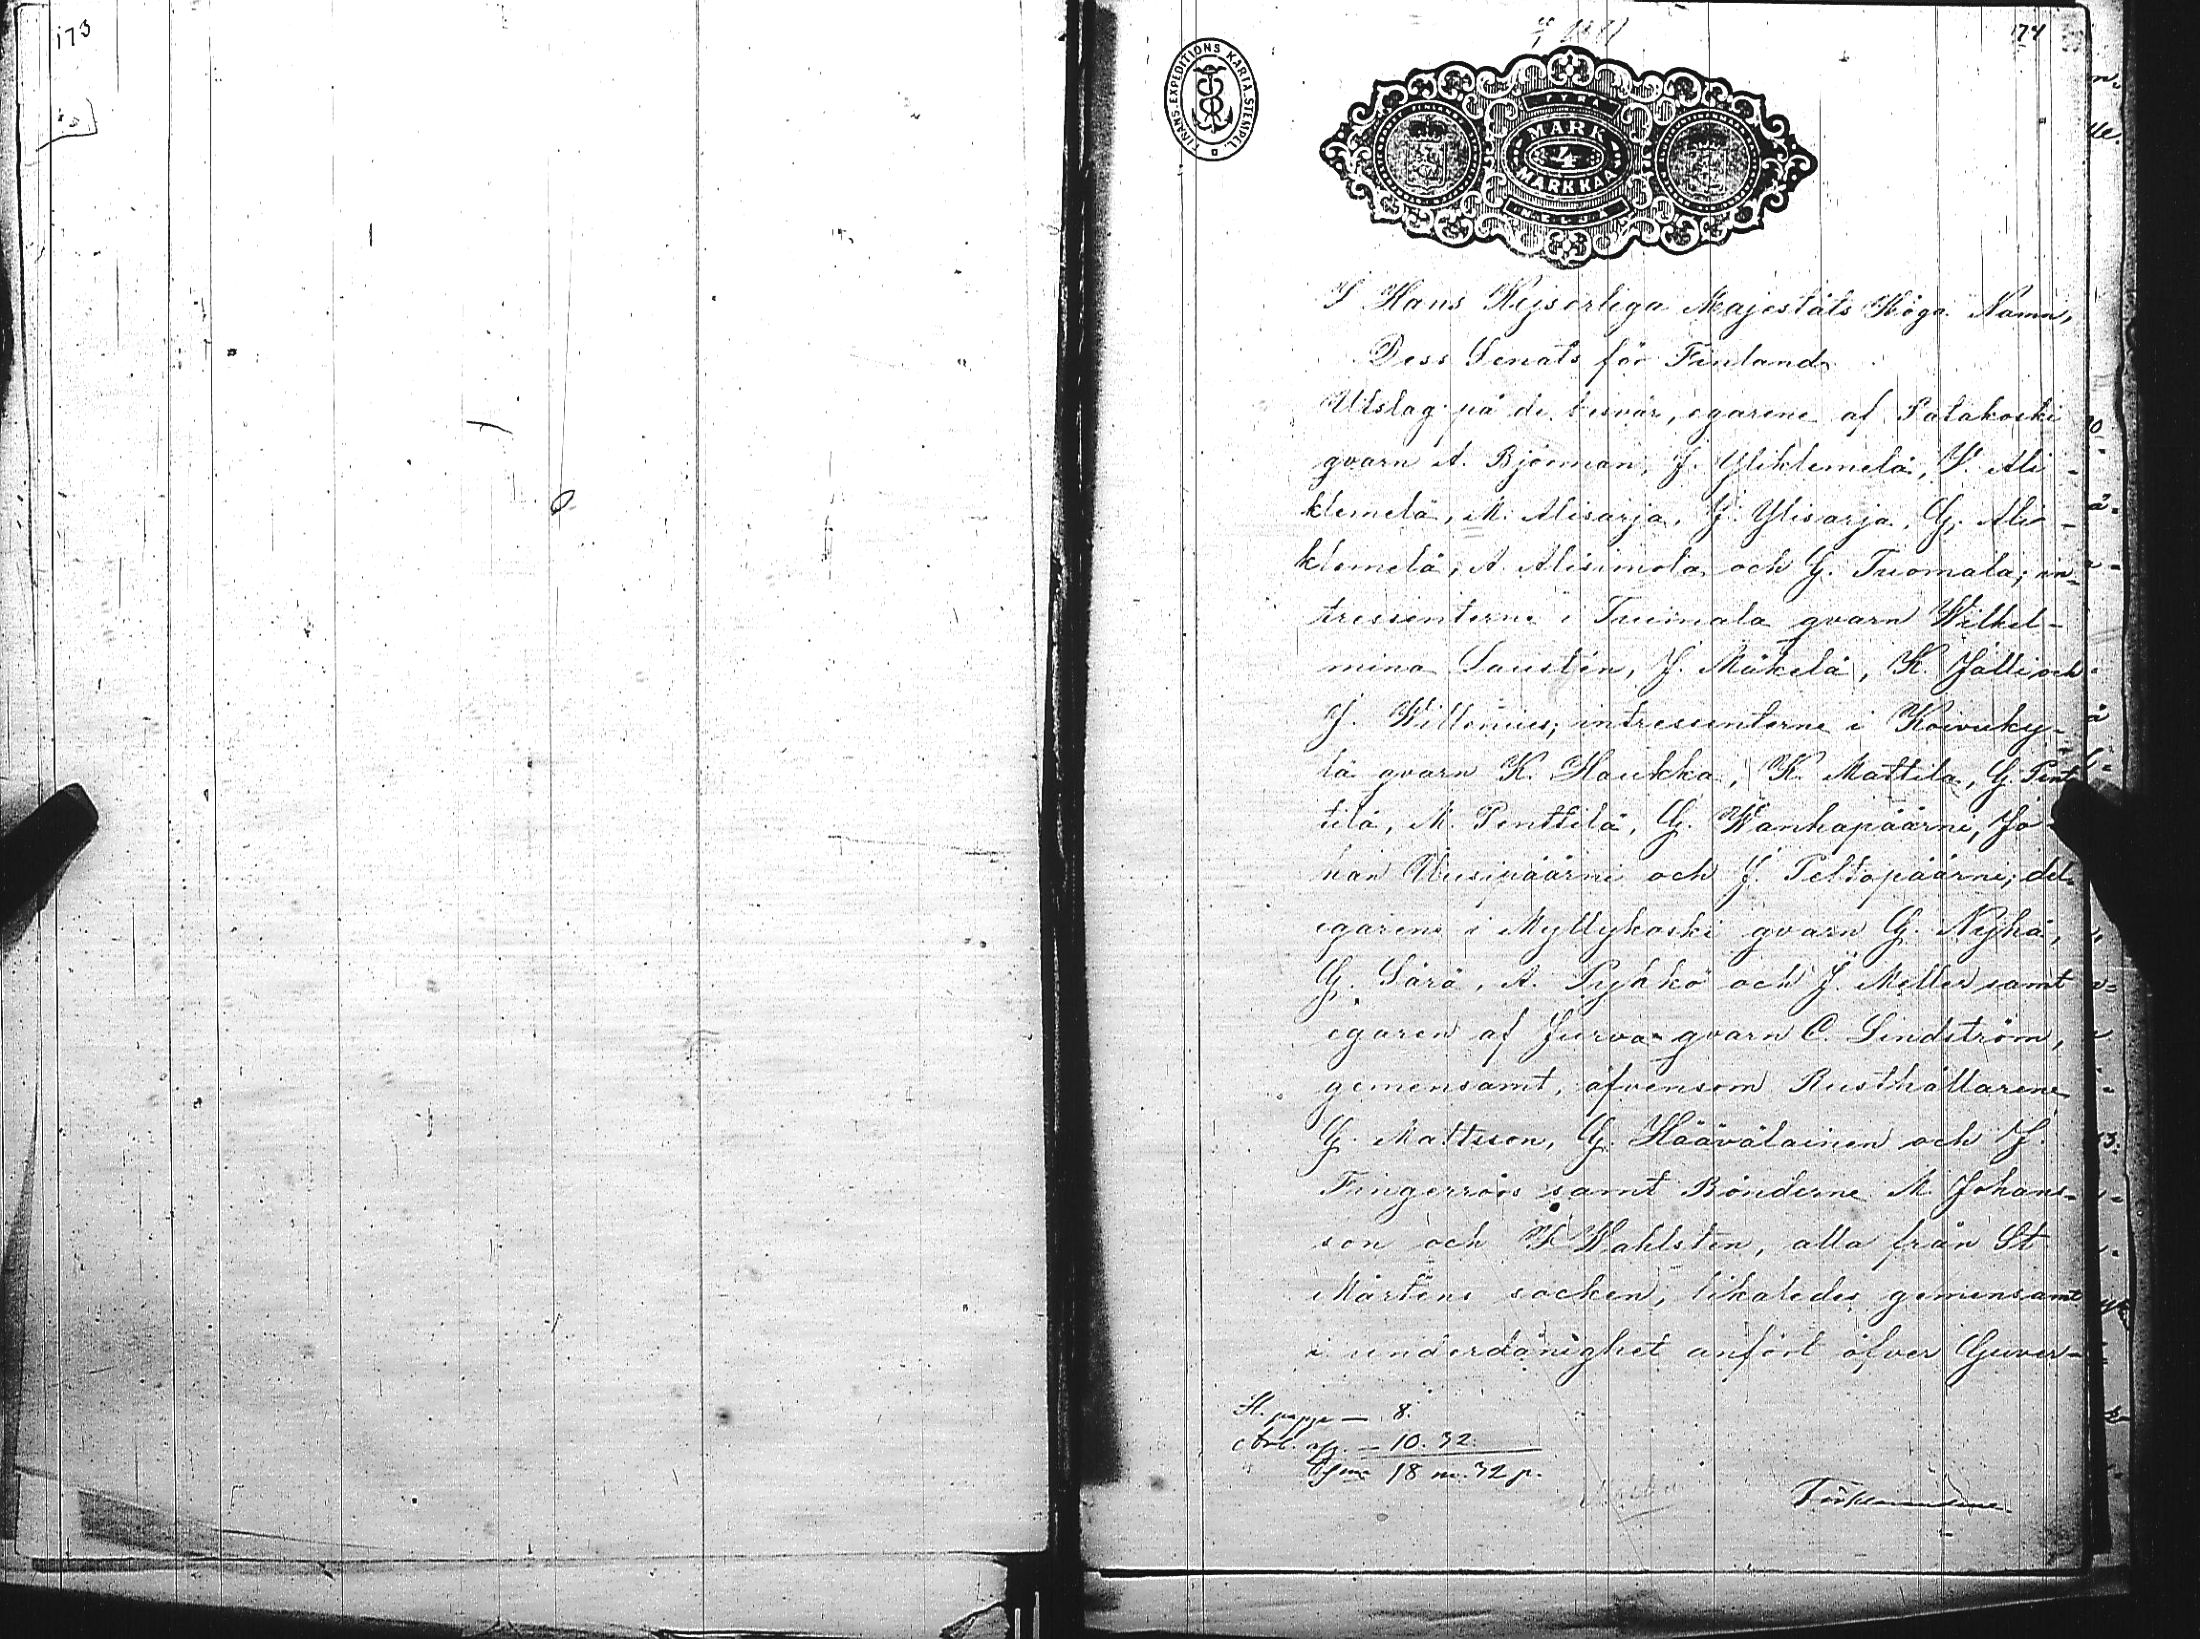 173
174
FINANS.EXPEDITIONS KARTA.STEMPEL.
FYRA
MARK
4
MARKKAA
NELJÄ
I Hans Kejserliga Majestäts Höga Namn,
Dess Senats för Finland
Utslag på de besvär, egarene af Patakoski
qvarn A. Björnman, J. Yliklemelä, V. Ali-
klemelä, M. Alisarja, J. Ylisarja, G. Ali-
klemelä, A. Alisimola och G. Tuomala; in-
tressenterne i Tuimala qvarn Wilhel-
mina Saustén, J. Mäkelä, K. Jälli och
J. Willenius; intressenterne i Koivuky-
lä qvarn K. Haukka, K. Mattila, G. Pent-
tilä, M. Penttilä, G. Wanhapäärni, Jo-
han Uusipäärni och J. Peltopäärni; del-
egarene i Myllykoski qvarn G. Nyhä,
G. Särä, A. Pyhkö och J. Meller samt
egaren af Jurva qvarn C. Lindström,
gemensamt, äfvensom Rusthållarene
G. Mattsson, G. Häävälainen och J.
Fingerroos samt Bönderne M. Johans-
son och K. Wahlsten, alla från St
Mårtens socken, likaledes gemensamt
i underdånighet anfört öfver Guver-
St. papp — 8.
10. 32.
18 m. 32 p.